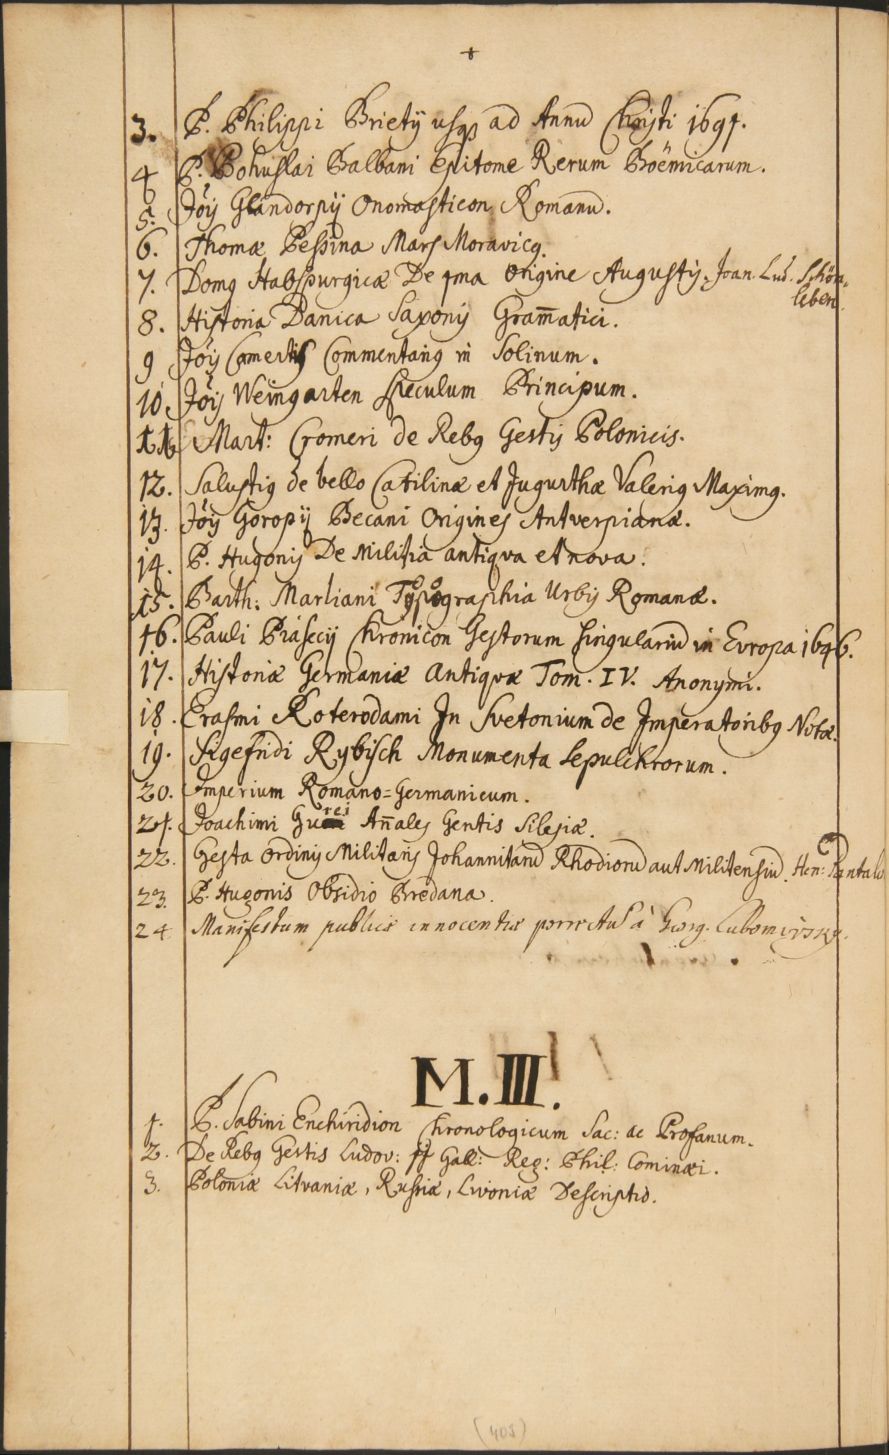 +
3. P. Philippi Brietÿ usq ad Annū Christi 1691.
4 P. Bohuslai Balbani Epitome Rerum Boëmicarum.
5. Joÿ Glandorpÿ Onomasticon Romanū.
6. Thomæ Pessina Mars Moravicq.
7. Domq Habspurgicæ De pma Origine Augustÿ. Joan. Lud. Schön-
leben.
8. Historia Danica Saxonÿ Gram̄atici.
9 Joÿ Camertis Commentariq in Solinum.
10 Joÿ Weingarten Speculum Principum.
11 Mart: Cromeri de Rebq Gestis Polonicis.
12. Salustiq de bello Catilinæ et Jugurthæ Valeriq Maximq.
13. Joÿ Goropÿ Becani Origines Antverpianæ.
14. P. Hugonis De Militia antiqva et nova.
15. Barth: Marliani Topographia Urbis Romanæ.
16. Pauli Piasecÿ Chronicon Gestorum singulariū in Evropa 1646.
17. Historiæ Germaniæ Antiqvæ Tom. IV. Anonymi.
18. Erasmi Roterodami In Svetonium de Imperatoribq Notæ.
19. Sigefridi Rybisch Monumenta Sepulchrorum.
20. Imperium Romano=Germanicum.
21. Joachimi Curei An̄ales Gentis Silesiæ.
22. Gesta Ordinis Militaris Johannitarū Rhodiorū aut Militensiū. Hen: Pantal
23. P. Hugonis Obsidio Bredana.
24 Manifestum publicæ innocentiæ porrectus à Georg. Lubomirsky.
M.III.
1. P. Sabini Enchiridion Chronologicum Sac: ac Profanum.
2. De Rebq Gestis Ludov: Gall: Reg: Phil: Cominæi.
3. Poloniæ Litvaniæ, Russiæ, Livoniæ Descriptio.
(405)